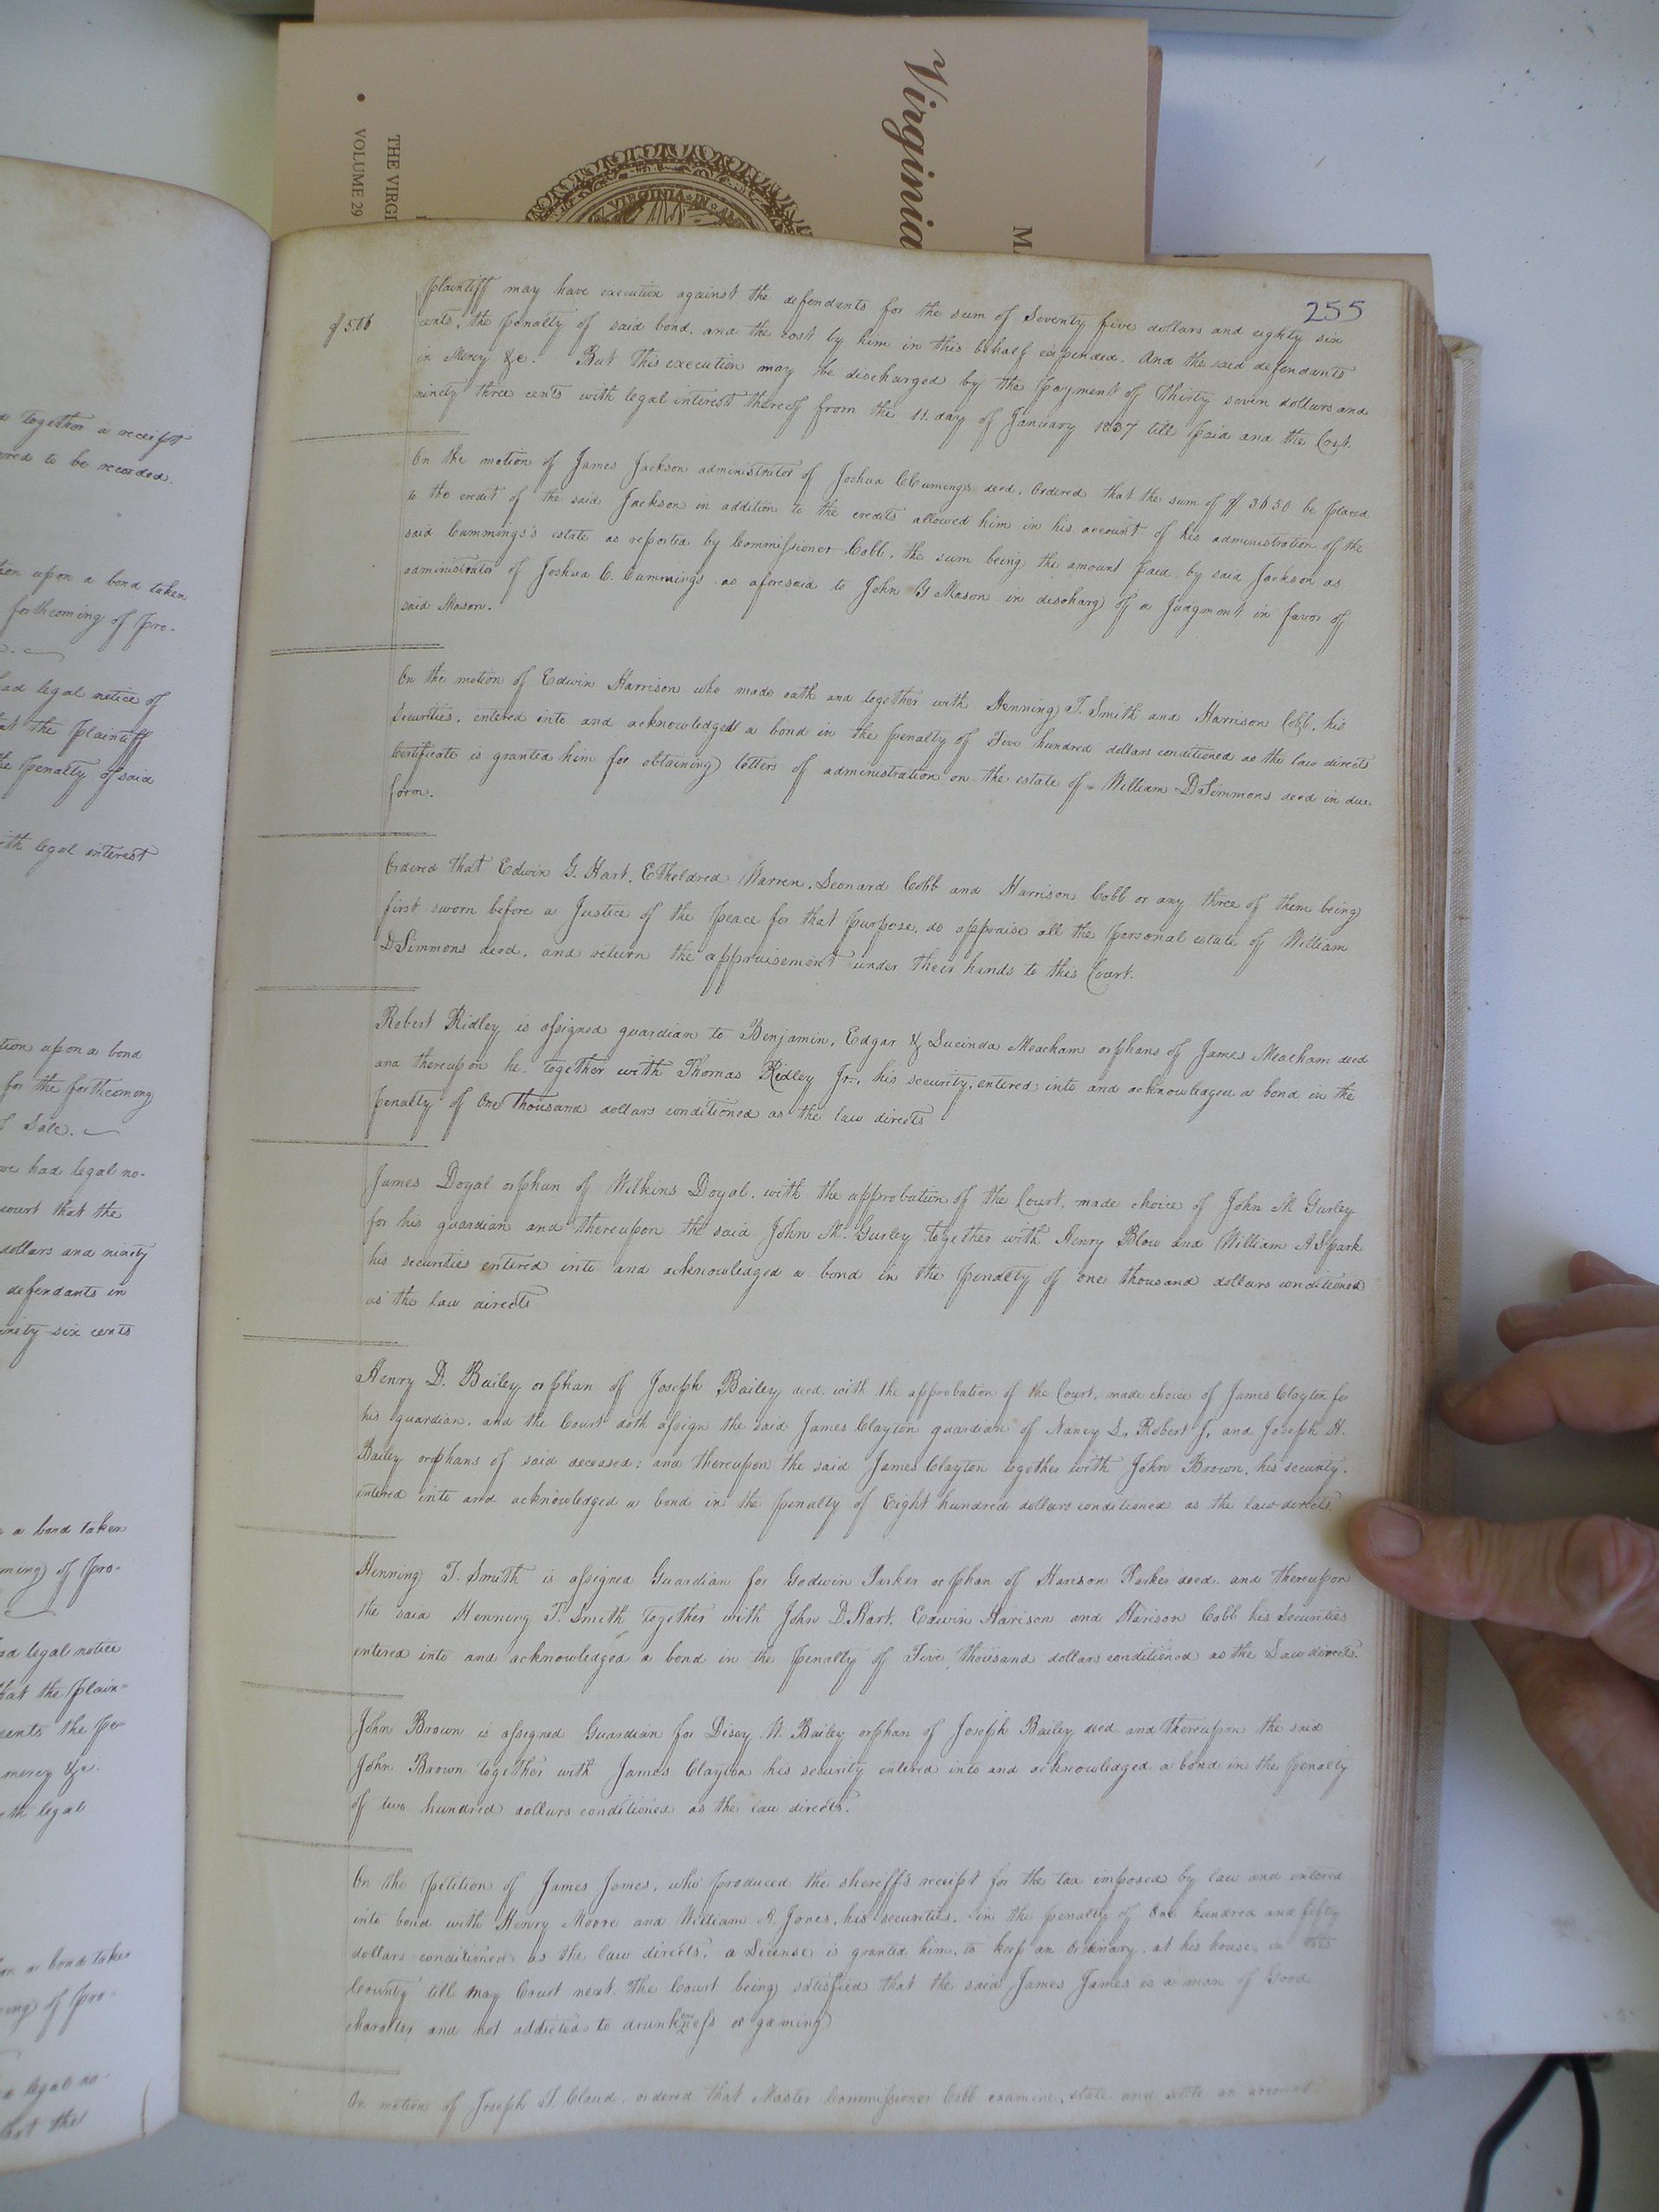 Virginia
M
THE VIRGI
VOLUME 29
VIRGINIA IN
255
plaintiff may have execution against the defendants for the sum of Seventy five dollars and eighty six
cents, the penalty of said bond, and the cost by him in this behalf expended. And the said defendants
in Mercy &c. But this execution may be discharged by the payment of Thirty seven dollars and
ninety three cents with legal interest thereof from the 11. day of January 1837 till paid and the Cost.
On the motion of James Jackson administrator of Joshua C Cumings decd, Ordered that the sum of $ 36 50 be placed
to the credit of the said Jackson in addition to the credits allowed him in his account of his administration of the
said Cummings's estate as reported by Commissioner Cobb, the sum being the amount paid by said Jackson as
administrator of Joshua C. Cummings as aforesaid to John G Mason in discharg of a Judgment in favor of
said Mason.
On the motion of Edwin Harrison who made oath and together with Henning T. Smith and Harrison Cobb, his
Securities, entered into and acknowledged a bond in the penalty of Five hundred dollars conditioned as the law directs
Certificate is granted him for obtaining letters of administration on the estate of William D Simmons decd in due
form.
Ordered that Edwin G. Hart, Etheldred Warren, Leonard Cobb and Harrison Cobb or any three of them being
first sworn before a Justice of the peace for that purpose, do appraise all the personal estate of William
D Simmons decd, and return the appraisement under their hands to this Court.
Robert Ridley is assigned guardian to Benjamin, Edgar & Lucinda Meacham orphans of James Meacham decd
and thereupon he together with Thomas Ridley Jr., his security, entered into and acknowledged a bond in the
penalty of One thousand dollars conditioned as the law directs
James Doyal orphan of Wilkins Doyal, with the approbation of the Court, made choice of John M Gurley
for his guardian and thereupon the said John M. Gurley together with Henry Blow and William A Spark
his securities entered into and acknowledged a bond in the penalty of one thousand dollars conditioned
as the law directs
Henry D. Bailey orphan of Joseph Bailey decd. with the approbation of the Court, made choice of James Clayton for
his guardian, and the Court doth assign the said James Clayton guardian of Nancy S. Robert J, and Joseph H.
Bailey orphans of said deceased: and thereupon the said James Clayton together with John Brown, his security.
entered into and acknowledged a bond in the penalty of Eight hundred dollars conditioned as the law directs.
Henning T. Smith is assigned Guardian for Godwin Parker orphan of Harison Parker decd. and thereupon
the said Henning T. Smith together with John D. Hart, Edwin Harison and Harison Cobb his Securities
entered into and acknowledged a bond in the penalty of Five thousand dollars conditioned as the Law directs.
John Brown is assigned Guardian for Disey N. Bailey orphan of Joseph Bailey decd and thereupon the said
John Brown together with James Clayton his security entered into and acknowledged a bond in the penalty
of two hundred dollars conditioned as the law directs.
On the petition of James James, who produced the sheriff's receipt for the tax imposed by law and entered
into bond with Henry Moore and William B. Jones, his securities, in the penalty of One hundred and fifty
dollars conditioned as the law directs, a License is granted him, to keep an Ordinary at his house in this
County till May Court next. The Court being satisfied that the said James James is a man of Good
character and not addicted to drunkenness or gaming
On motion of Joseph T. Claud, ordered that Master Commissioner Cobb examine, state and settle an account
together a receipt
to be recorded.
upon a bond taken
forthcoming of pro-
legal notice of
the plaintiff
penalty of said
legal interest
upon a bond
for the forthcoming
Sale.
had legal no-
court that the
dollars and ninety
defendants in
six cents
a bond taken
of pro-
legal notice
the plain-
cents the pe-
mercy &c.
legal
a bond taken
of pro-
a legal no-
the